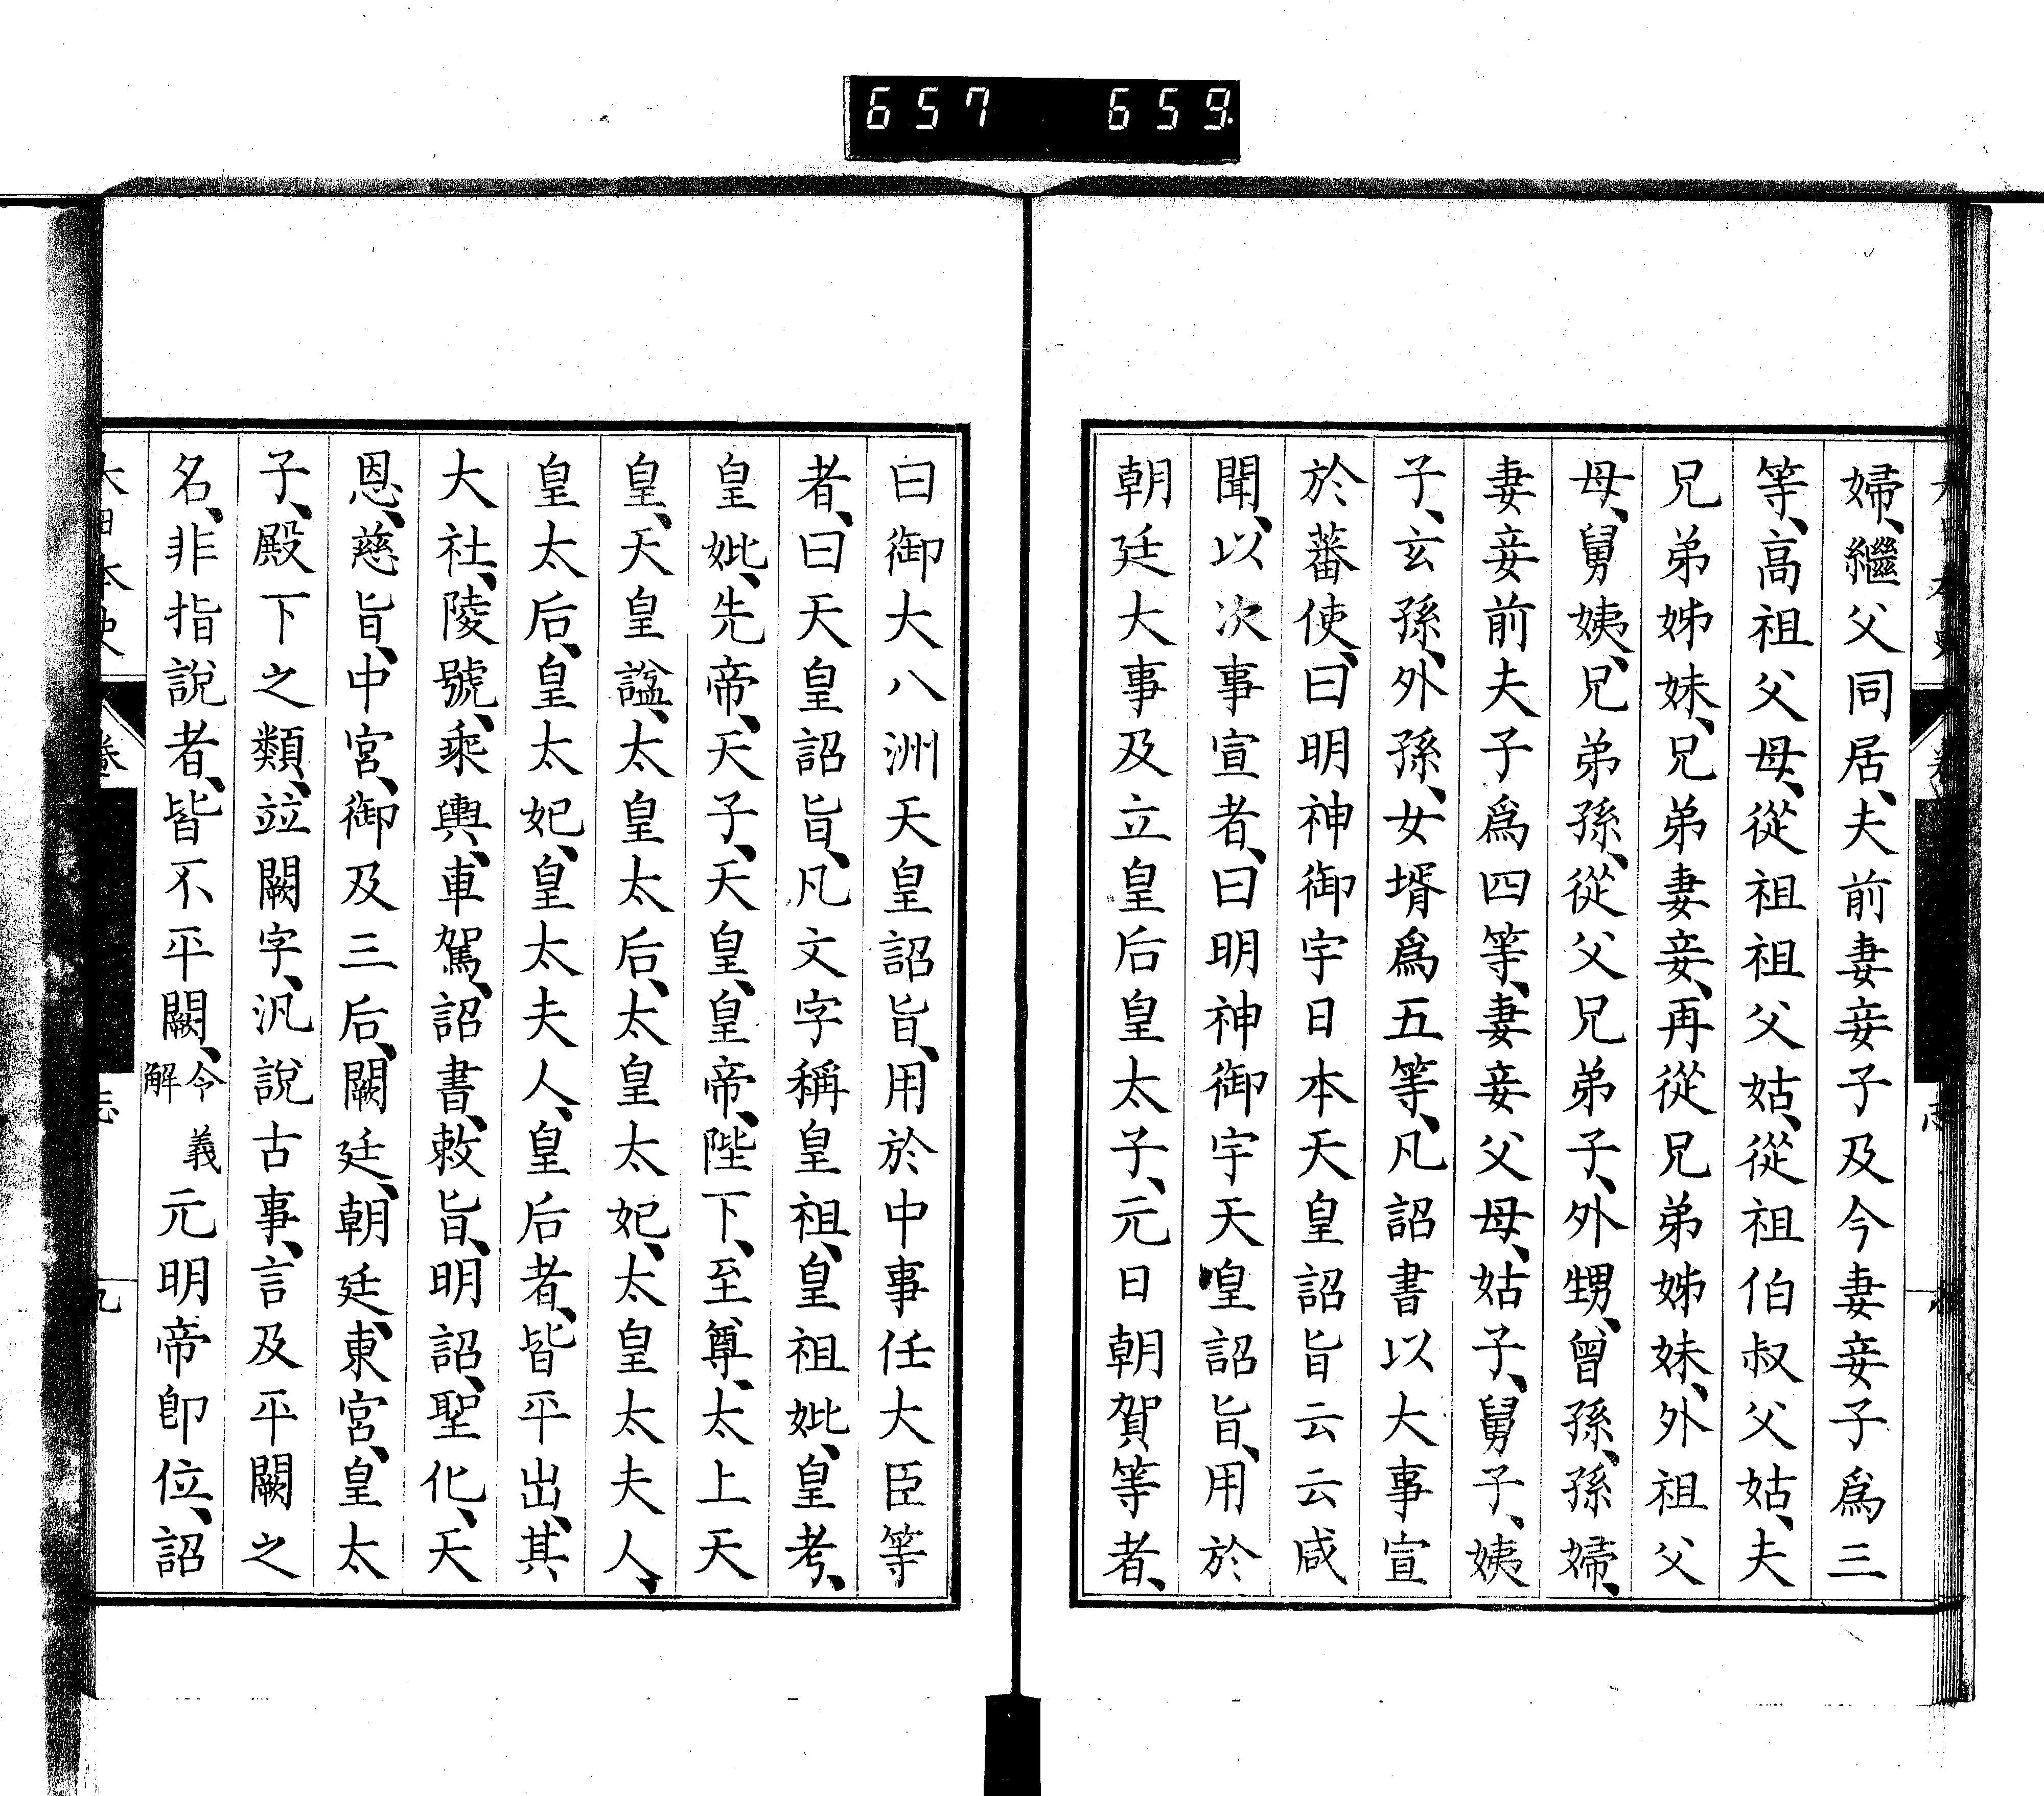 657 659.
婦、繼父同居、夫前妻妾子及今妻妾子爲三
等、高祖父母、從祖祖父姑、從祖伯叔父姑、夫
兄弟姊妹、兄弟妻妾、再從兄弟姊妹、外祖父
母、舅姨、兄弟孫、從父兄弟子、外甥、曾孫、孫婦、
妻妾前夫子爲四等、妻妾父母、姑子、舅子、姨
子、玄孫、外孫、女壻爲五等、凡詔書以大事宣
於蕃使、曰明神御宇日本天皇詔旨云云咸
聞、以次事宣者、曰明神御宇天皇詔旨、用於
朝廷大事及立皇后皇太子、元日朝賀等者、
曰御大八洲天皇詔旨、用於中事任大臣等
者、曰天皇詔旨、凡文字稱皇祖、皇祖妣、皇考、
皇妣、先帝、天子、天皇、皇帝、陛下、至尊、太上天
皇、天皇諡、太皇太后、太皇太妃、太皇太夫人、
皇太后、皇太妃、皇太夫人、皇后者、皆平出、其
大社、陵號、乘輿、車駕、詔書、敕旨、明詔、聖化、天
恩、慈旨、中宮、御及三后、闕廷、朝廷、東宮、皇太
子、殿下之類、竝闕字、汎說古事、言及平闕之
名、非指說者、皆不平闕、令義解 元明帝卽位、詔
大日本史 卷 志 九